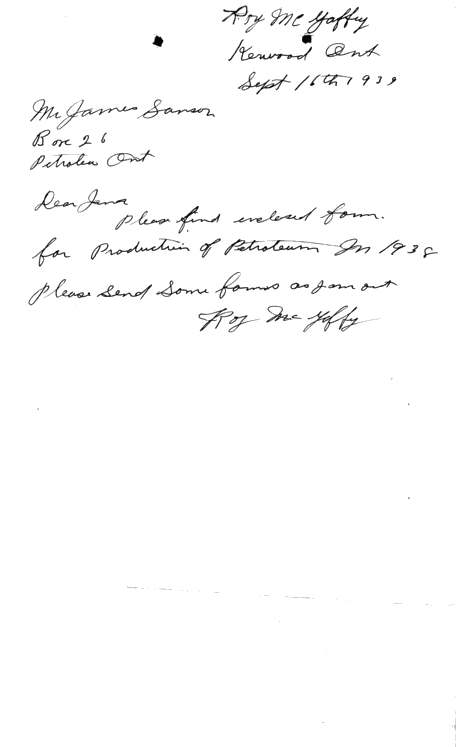 Roy Mc Gaffey
Kerwood Ont
Sept 16th 1939
Mr James Sanson
Box 26
Petrolea Ont
Dear
please find enclosed form.
for Production of Petroleum In 1938
please send some forms as I am out
Roy Mc Gaffey